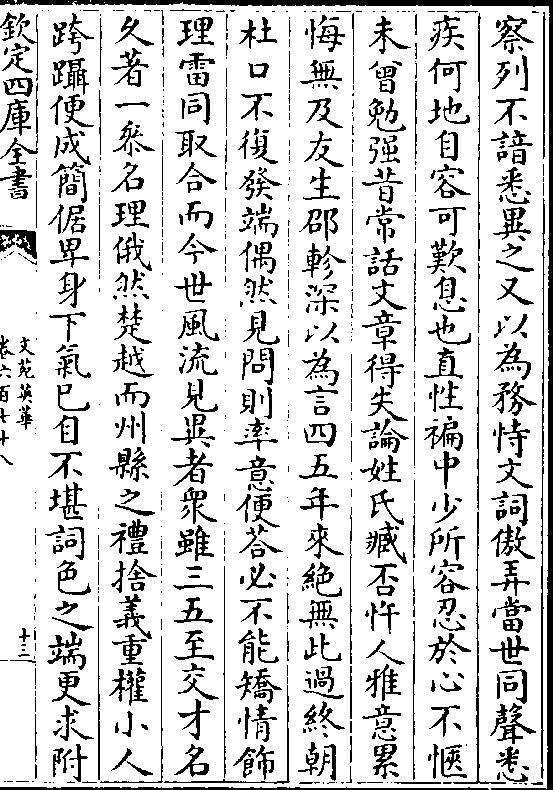 察列不諳悉異之又以為務恃文詞傲弄當世同聲悉
疾何地自容可歎息也直性褊中少所容忍於心不愜
未曾勉强昔常話文章得失論姓氏臧否忤人雅意累
悔無及友生邵軫深以為言四五年來絶無此過終朝
杜口不復發端偶然見問則率意便答必不能矯情飾
理雷同取合而今世風流見異者衆雖三五至交才名
久著一叅名理俄然楚越而州縣之禮捨義重權小人
跨躡便成簡倨卑身下氣已自不堪詞色之端更求附
欽定四庫全書
文苑英華
卷六百七十八
十三